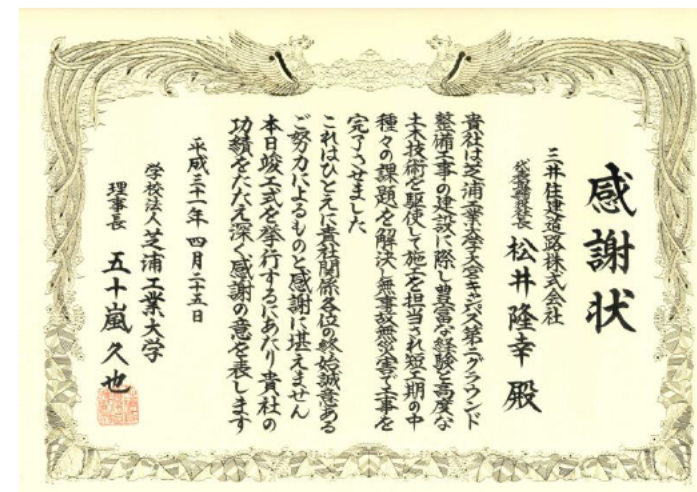 感謝状
三井住建道路株式会社
代表取締役社長 松井隆幸 殿
貴社は芝浦工業大学大宮キャンパス第二グラウンド
整備工事の建設に際し豊富な経験と高度な
土木技術を駆使して施工を担当され短工期の中
種々の課題を解決し無事故無災害で工事を
完了させました
これはひとえに貴社関係各位の終始誠意ある
ご努力によるものと感謝に堪えません
本日竣工式を挙行するにあたり貴社の
功績をたたえ深く感謝の意を表します
平成三十一年四月二十五日
学校法人 芝浦工業大学
理事長 五十嵐久也